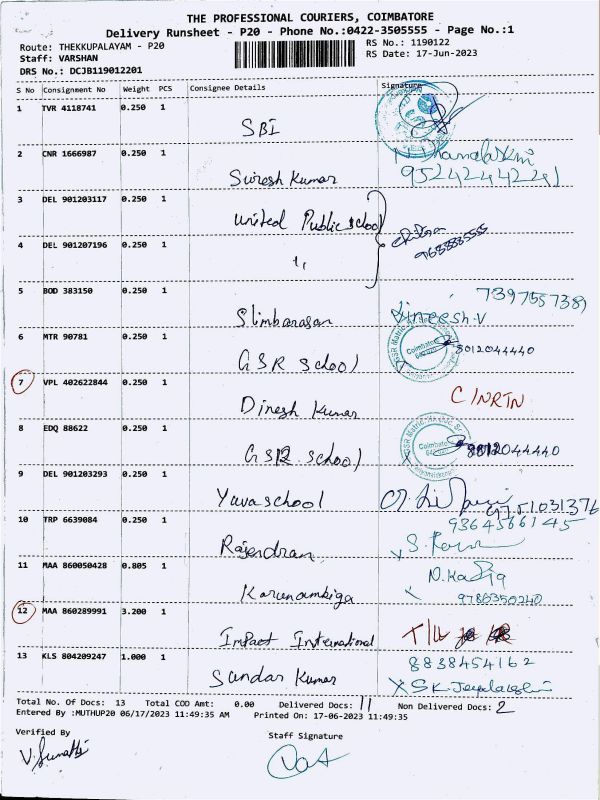 THE PROFESSIONAL COURIERS, COIMBATORE
Delivery Runsheet - P20 - Phone No.:0422-3505555 - Page No.:1
Route: THEKKUPALAYAM - P20 RS No.: 1190122
Staff: VARSHAN RS Date: 17-Jun-2023
DRS No.: DCJB119012201
S No Consignment No Weight PCS Consignee Details Signature
1 TVR 4118741 0.250 1
SBI
2 CNR 1666987 0.250 1
Suresh Kumar 9524244224)
3 DEL 901203117 0.250 1
United Public School
4 DEL 901207196 0.250 1
5 BOD 383150 0.250 1 7397557389
Silmbarasan Dineesh.V
6 MTR 90781 0.250 1
GSR School 8012044440
7 VPL 402622844 0.250 1 C/NRTN
Dinesh Kumar
8 EDQ 88622 0.250 1
GSR School 8012044440
9 DEL 901203293 0.250 1
Yuva school 9751031376
10 TRP 6639084 0.250 1 9364566145
Rajendran
11 MAA 860050428 0.805 1
Karunambiga 9786350240
12 MAA 860289991 3.200 1
Impact International
13 KLS 804209247 1.000 1 8838454162
Sundar Kumar
Total No. Of Docs: 13 Total COD Amt: 0.00 Delivered Docs: 11 Non Delivered Docs: 2
Entered By :MUTHUP20 06/17/2023 11:49:35 AM Printed On: 17-06-2023 11:49:35
Verified By Staff Signature